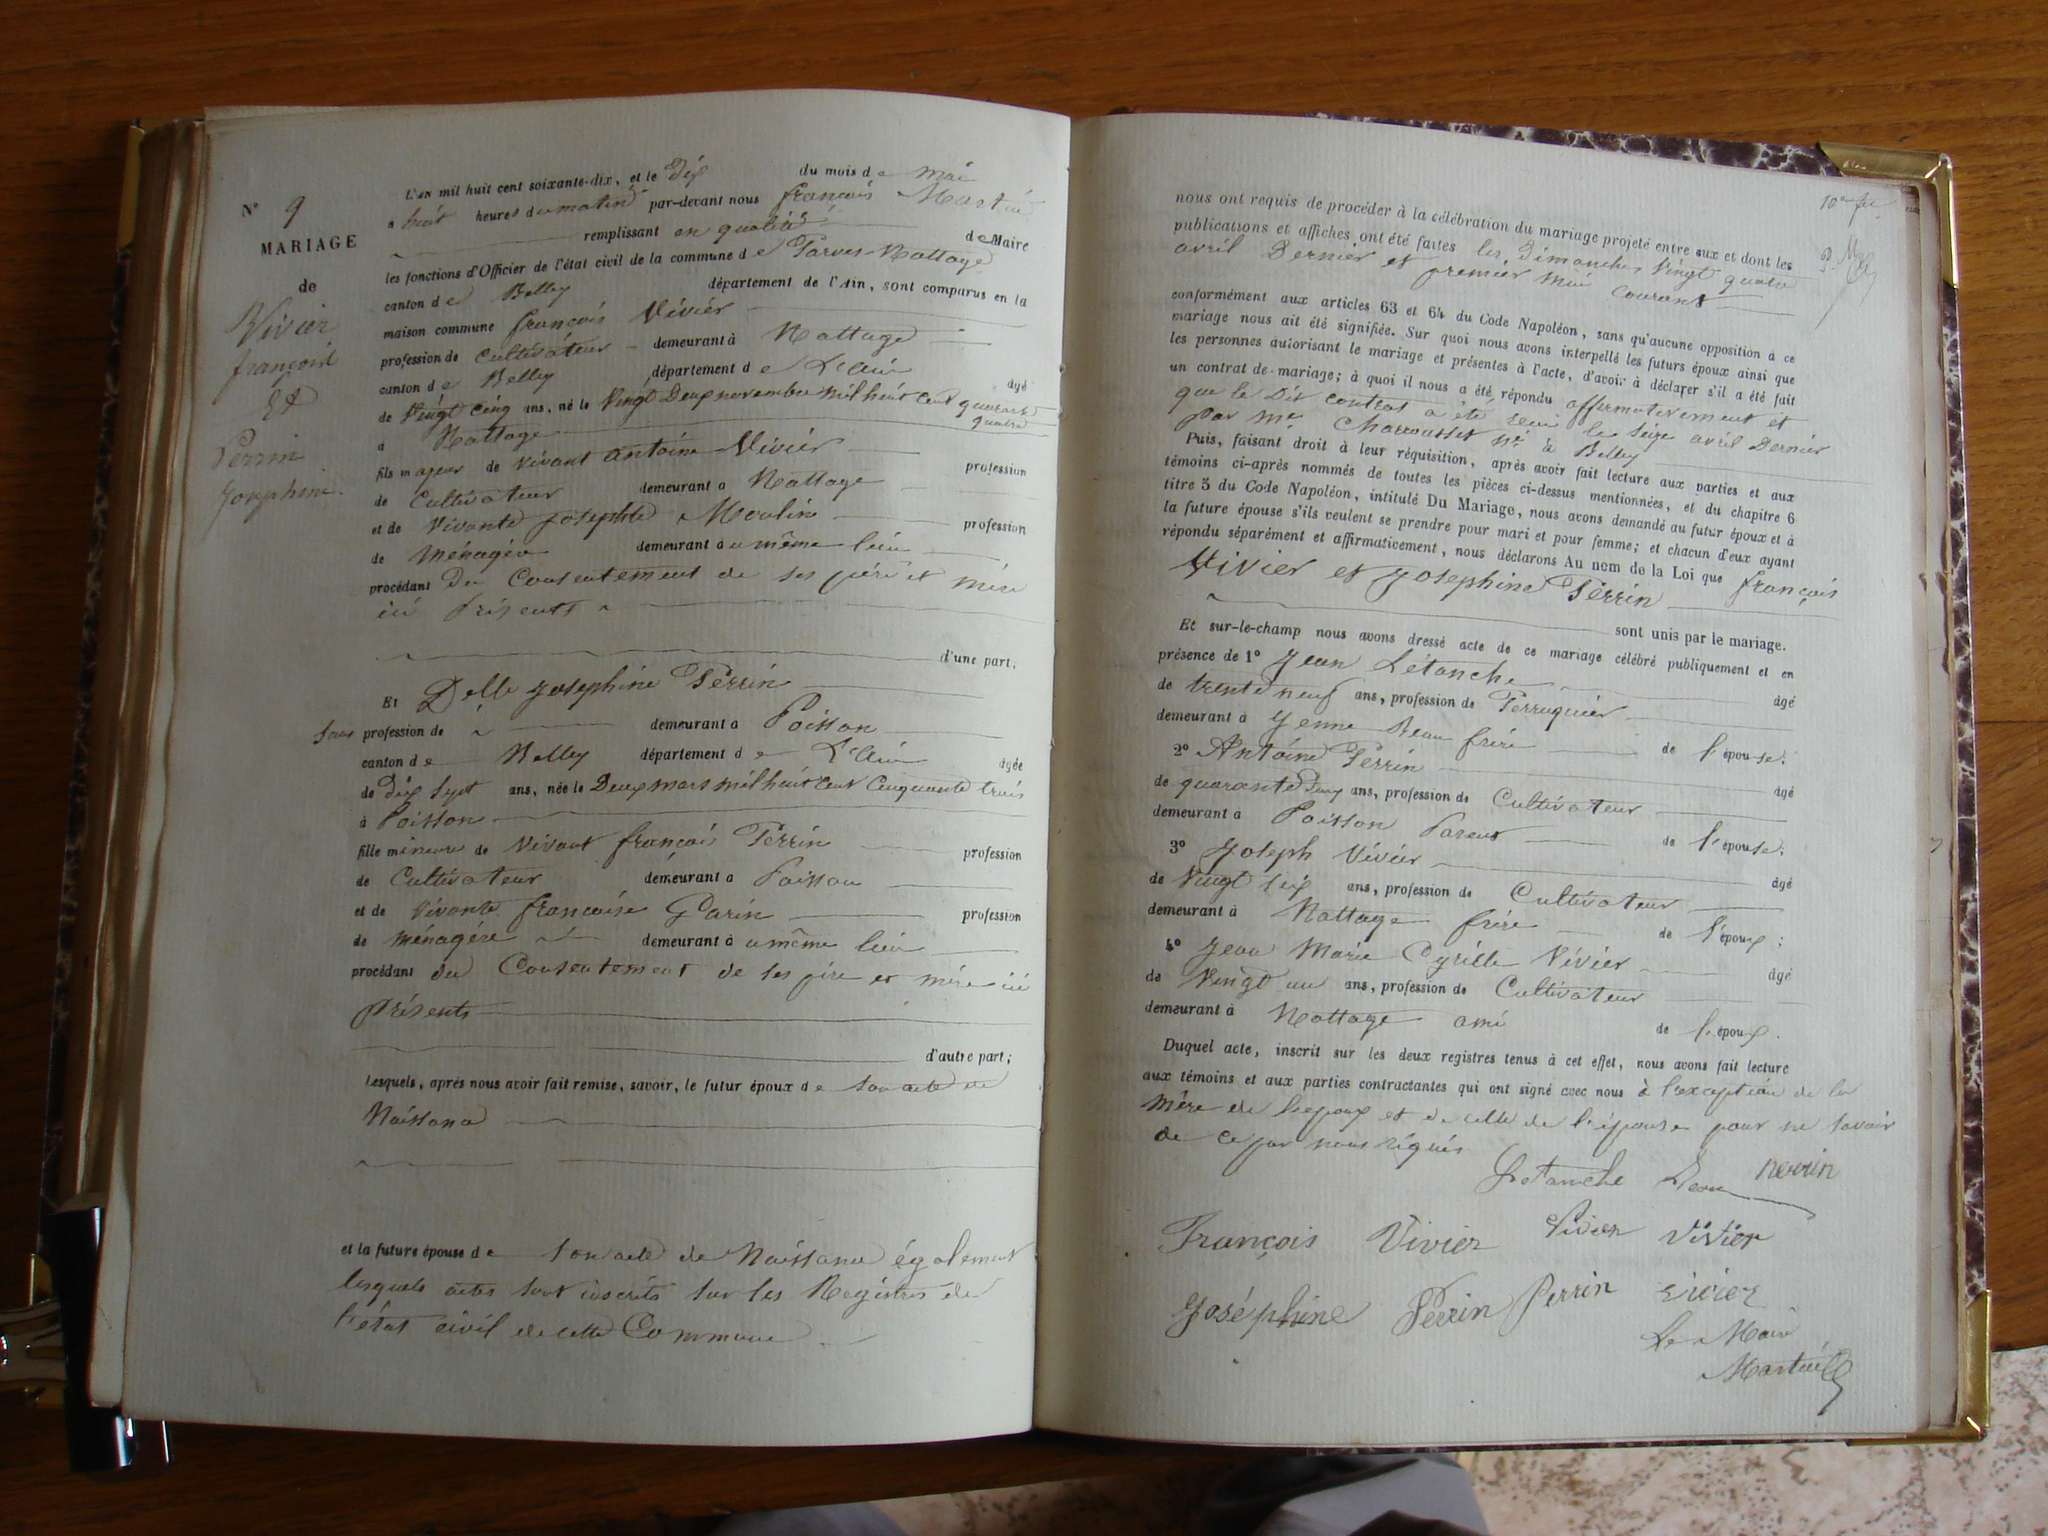 N° 9
MARIAGE
de
Vivier
françois
Et
Perrin
Josephine.
L'an mil huit cent soixante-dix, et le Dix du mois de Mai
a huit heures du matin par-devant nous françois Martin
remplissant en qualité de Maire
les fonctions d'Officier de l'état civil de la commune de Parves-Nattage
canton de Belley département de l'Ain, sont comparus en la
maison commune françois Vivier
profession de Cultivateur demeurant à Nattage
canton de Belley département de L'ain âgé
de Vingt cinq ans, né le Vingt Deux novembre mil huit cent quarante
quatre
à Nattage
fils majeur de vivant antoine Vivier profession
de Cultivateur demeurant a Nattage
et de Vivante Josephte Moulin profession
de Ménagère demeurant à u même lieu
procédant Du Consentement de ses père et mère
ici Présents
d'une part,
Et Delle Josephine Perrin
Sans profession de demeurant a Poisson
canton de Belley département de L'Ain âgée
de Dix Sept ans, née le Deux mars mil huit cent Cinquante trois
à Poisson
fille mineure de Vivant françois Perrin profession
de Cultivateur demeurant a Poisson
et de Vivante françoise Garin profession
de Ménagère demeurant à u même lieu
procédant du Consentement de ses père et mère ici
présents
d'autre part;
Lesquels, après nous avoir fait remise, savoir, le futur époux de son acte de
Naissance
et la future épouse de son acte de Naissance également
lesquels actes sont inscrits sur les Registres de
l'état civil de cette Commune
nous ont requis de procéder à la célébration du mariage projeté entre eux et dont les
publications et affiches ont été faites les Dimanches Vingt quatre
avril Dernier et premier Mai courant
conformément aux articles 63 et 64 du Code Napoléon, sans qu'aucune opposition à ce
mariage nous ait été signifiée. Sur quoi nous avons interpellé les futurs époux ainsi que
les personnes autorisant le mariage et présentes à l'acte, d'avoir à déclarer s'il a été fait
un contrat de mariage; à quoi il nous a été répondu affirmativement et
que le Dit contrat a été reçu le Seize avril Dernier
par Me Charcusset Nre à Belley
Puis, faisant droit à leur réquisition, après avoir fait lecture aux parties et aux
témoins ci-après nommés de toutes les pièces ci-dessus mentionnées, et du chapitre 6
titre 5 du Code Napoléon, intitulé Du Mariage, nous avons demandé au futur époux et à
la future épouse s'ils veulent se prendre pour mari et pour femme; et chacun d'eux ayant
répondu séparément et affirmativement, nous déclarons Au nom de la Loi que françois
Vivier et Josephine Perrin
sont unis par le mariage.
Et sur-le-champ nous avons dressé acte de ce mariage célébré publiquement et en
présence de 1° Jean Létanche âgé
de trente neuf ans, profession de Perruquier
demeurant à Yenne Beau frère de l'épouse;
2° Antoine Perrin âgé
de quarante Deux ans, profession de Cultivateur
demeurant a Poisson Parent de l'épouse;
3° Joseph Vivier âgé
de Vingt six ans, profession de Cultivateur
demeurant à Nattage frère de l'époux;
4° Jean Marie Cyrille Vivier âgé
de Vingt un ans, profession de Cultivateur
demeurant à Nattage ami de l'époux.
Duquel acte, inscrit sur les deux registres tenus à cet effet, nous avons fait lecture
aux témoins et aux parties contractantes qui ont signé avec nous à l'exception de la
Mère de l'epoux et de celle de l'épouse pour ne savoir
de ce par nous réquis
Letanche Jean Perrin
François Vivier Vivier Vivier
Joséphine Perrin Perrin Vivier
Le Maire
Martin